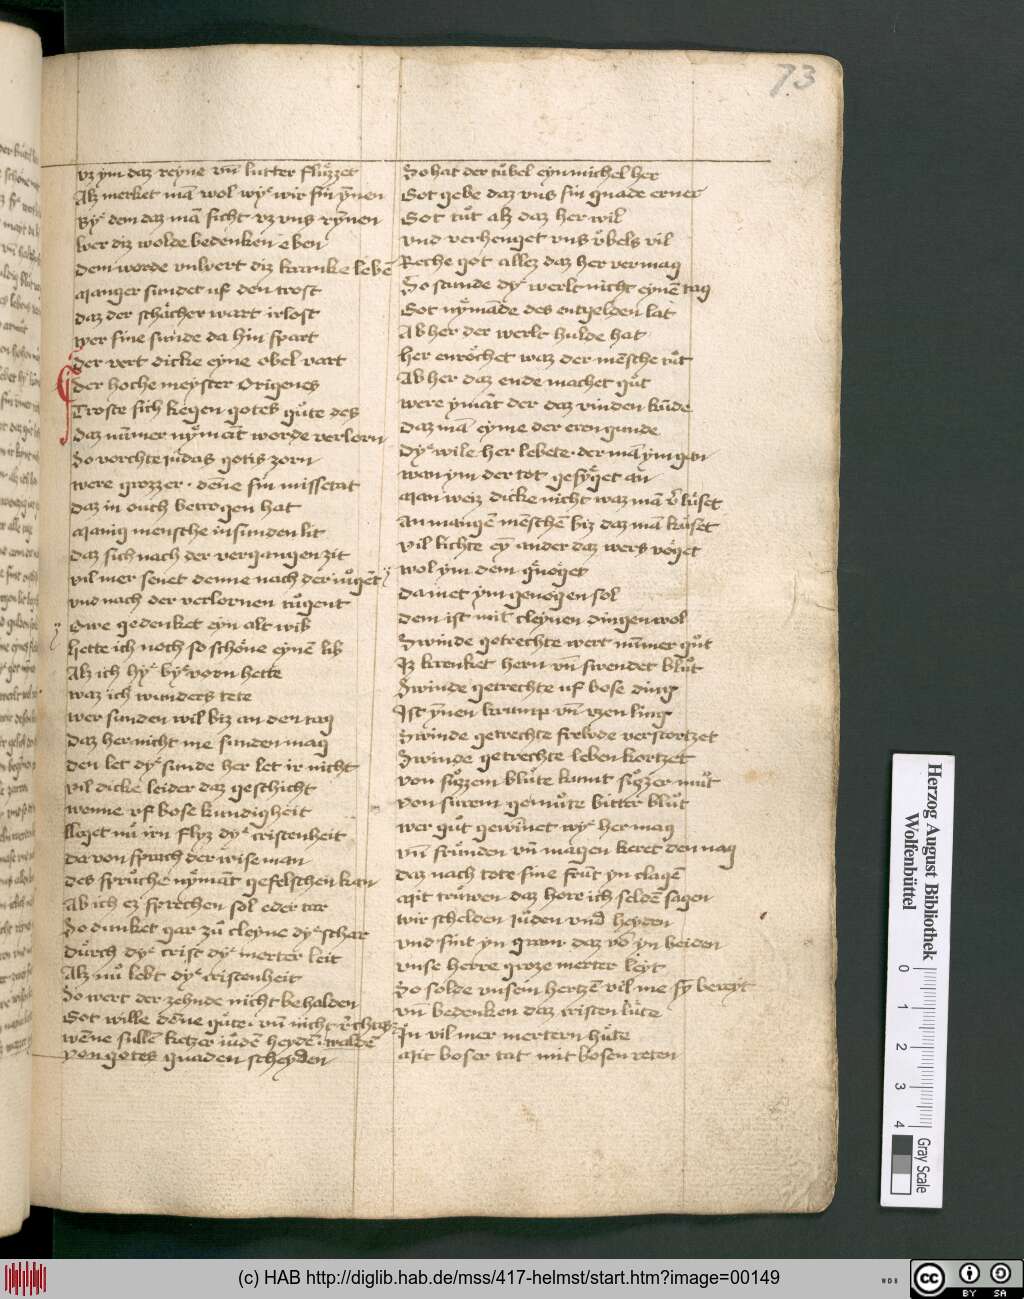 73
vz ym daz reyne vn̄ lutter fluͤzzet
Alz merket mā wol wyͤ wir sin ẏnen
Byͤ dem daz mā sicht vz vns rẏnen
wer diz wolde bedenken eben
dem worde vnwert diz kranke lebē
Manger sundet uf den trost
daz der schacher wart irlost
wer sine sunde da hin spart
der vert dicke eyne obel vart
der hoche meyster Origenes
Troste sich kegen gotes guͤte des
daz nūmer nymāt worde verlorn
So vorchte iudas gotis zorn
were grozzer denne sin missetat
daz in ouch betrogen hat
Manig mensche in sunden lit
daz sich nach der vergangen zit
vil mer senet denne nach der iugēt
vnd nach der verlornen tugent
Owe gedenket eyn alt wib
hette ich noch so schone eynē lib
Alz ich hyͤ byͤ vorn hette
waz ich wunders tete
wer sunden wil biz an den tag
daz her nicht me sunden mag
den let dyͤ sunde her let ir nicht
vil dicke leider daz geschicht
wenne vf bose kundigheit
leget nu irn flyz dyͤ cristenheit
da von sprach der wise man
des spruche nymāt gefelschen kan
Ab ich ez sprechen sol eder tar
So dunket gar zu cleyne dyͤ schar
Durch dyͤ crist dyͤ merter leit
Alz nu lebt dyͤ cristenheit
So wert der zehnde nicht behalden
Got wille denne guͤte vn̄ nicht
wēne sullē ketzer iudē heydē walden
von gotes gnaden scheyden
So hat der tuͤbel eyn michel her
Got gebe daz vns sin gnade erner
Got tuͤt alz daz her wil
vnd verhenget vns vbels vil
Reche got allez daz her vermag
So stunde dyͤ werlt nicht eynē tag
Got nymāde des entgelden lat
Ab her der werlt hulde hat
her enrochet waz der mēsche tuͤt
Ab her daz ende machet guͤt
were ymāt der daz vinden kūde
daz mā eyme der eren gunde
dyͤ wile her lebete der mā ym gan
wan ym der tot gesyget an
Man weiz dicke nicht waz mā vluset
An mangē mēschē biz daz mā kuset
vil lichte eȳ ander daz wers voget
wol ym dem
da met ym genogen sol
dem ist mit cleynen dingen wol
Swinde getrechte wert nūmer guͤt
Iz krenket hern vn̄ swendet bluͤt
Swinde getrechte uf bose ding
Ist ynen krump vn̄ vzen ling
Swinde getrechte freude verstortzet
Swinde getrechte leben kortzet
von suͤzzem bluͤte kumt suͤzer muͤt
von surem gemuͤte bitter bluͤt
wer guͤt gewinnet wyͤ her mag
vn̄ frunden vn̄ magen keret den nag
daz nach tote sine frut yn clagē
Mit truwen daz hore ich seldē sagen
wir schelden iuden vnd heyden
vnd sint yn gram daz vō yn beiden
vnse herre groze merter leyt
So solde vnsem hertzē vil me sy bereyt
vn̄ bedenken daz cristen luͤte
In vil mer mertern huͤte
Mit boser tat mit bosen reten
Herzog August Bibliothek
Wolfenbüttel
0 1 2 3 4
Gray Scale
(c) HAB http://diglib.hab.de/mss/417-helmst/start.htm?image=00149
WDB
cc
BY SA